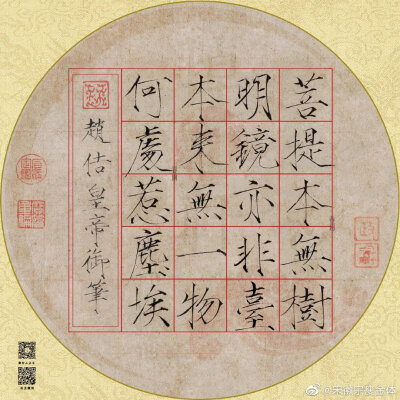 菩提本無樹
明鏡亦非臺
本來無一物
何處惹塵埃
趙佶皇帝御筆